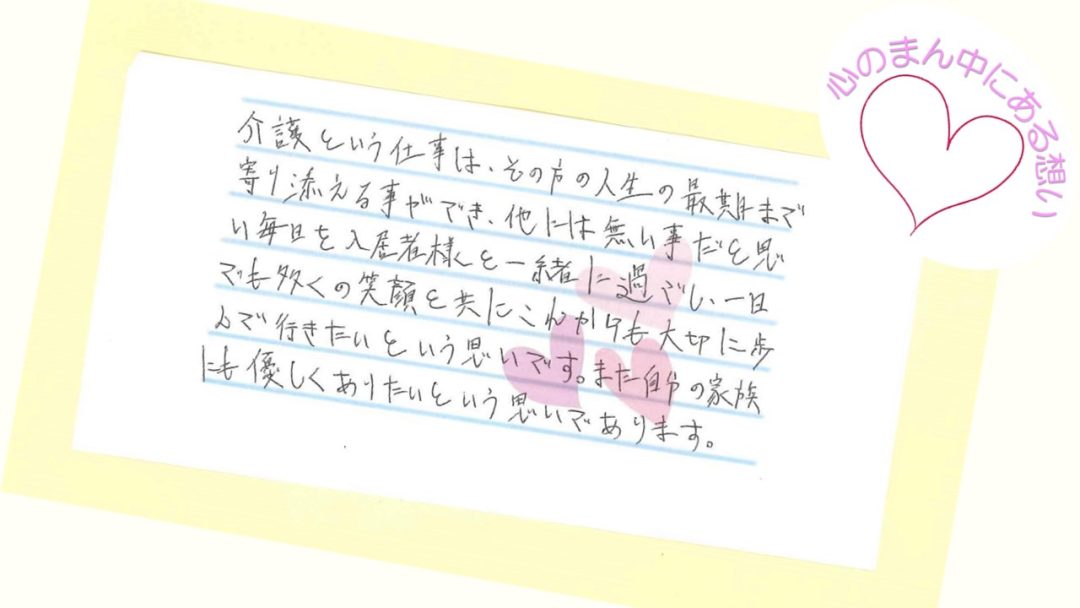 心のまん中にある想い
介護という仕事は、その方の人生の最期まで
寄り添える事ができ、他には無い事だと思
い毎日を入居者様と一緒に過ごし、一日
でも多くの笑顔と共にこれからも大切に歩
んで行きたいという思いです。また自分の家族
にも優しくありたいという思いであります。